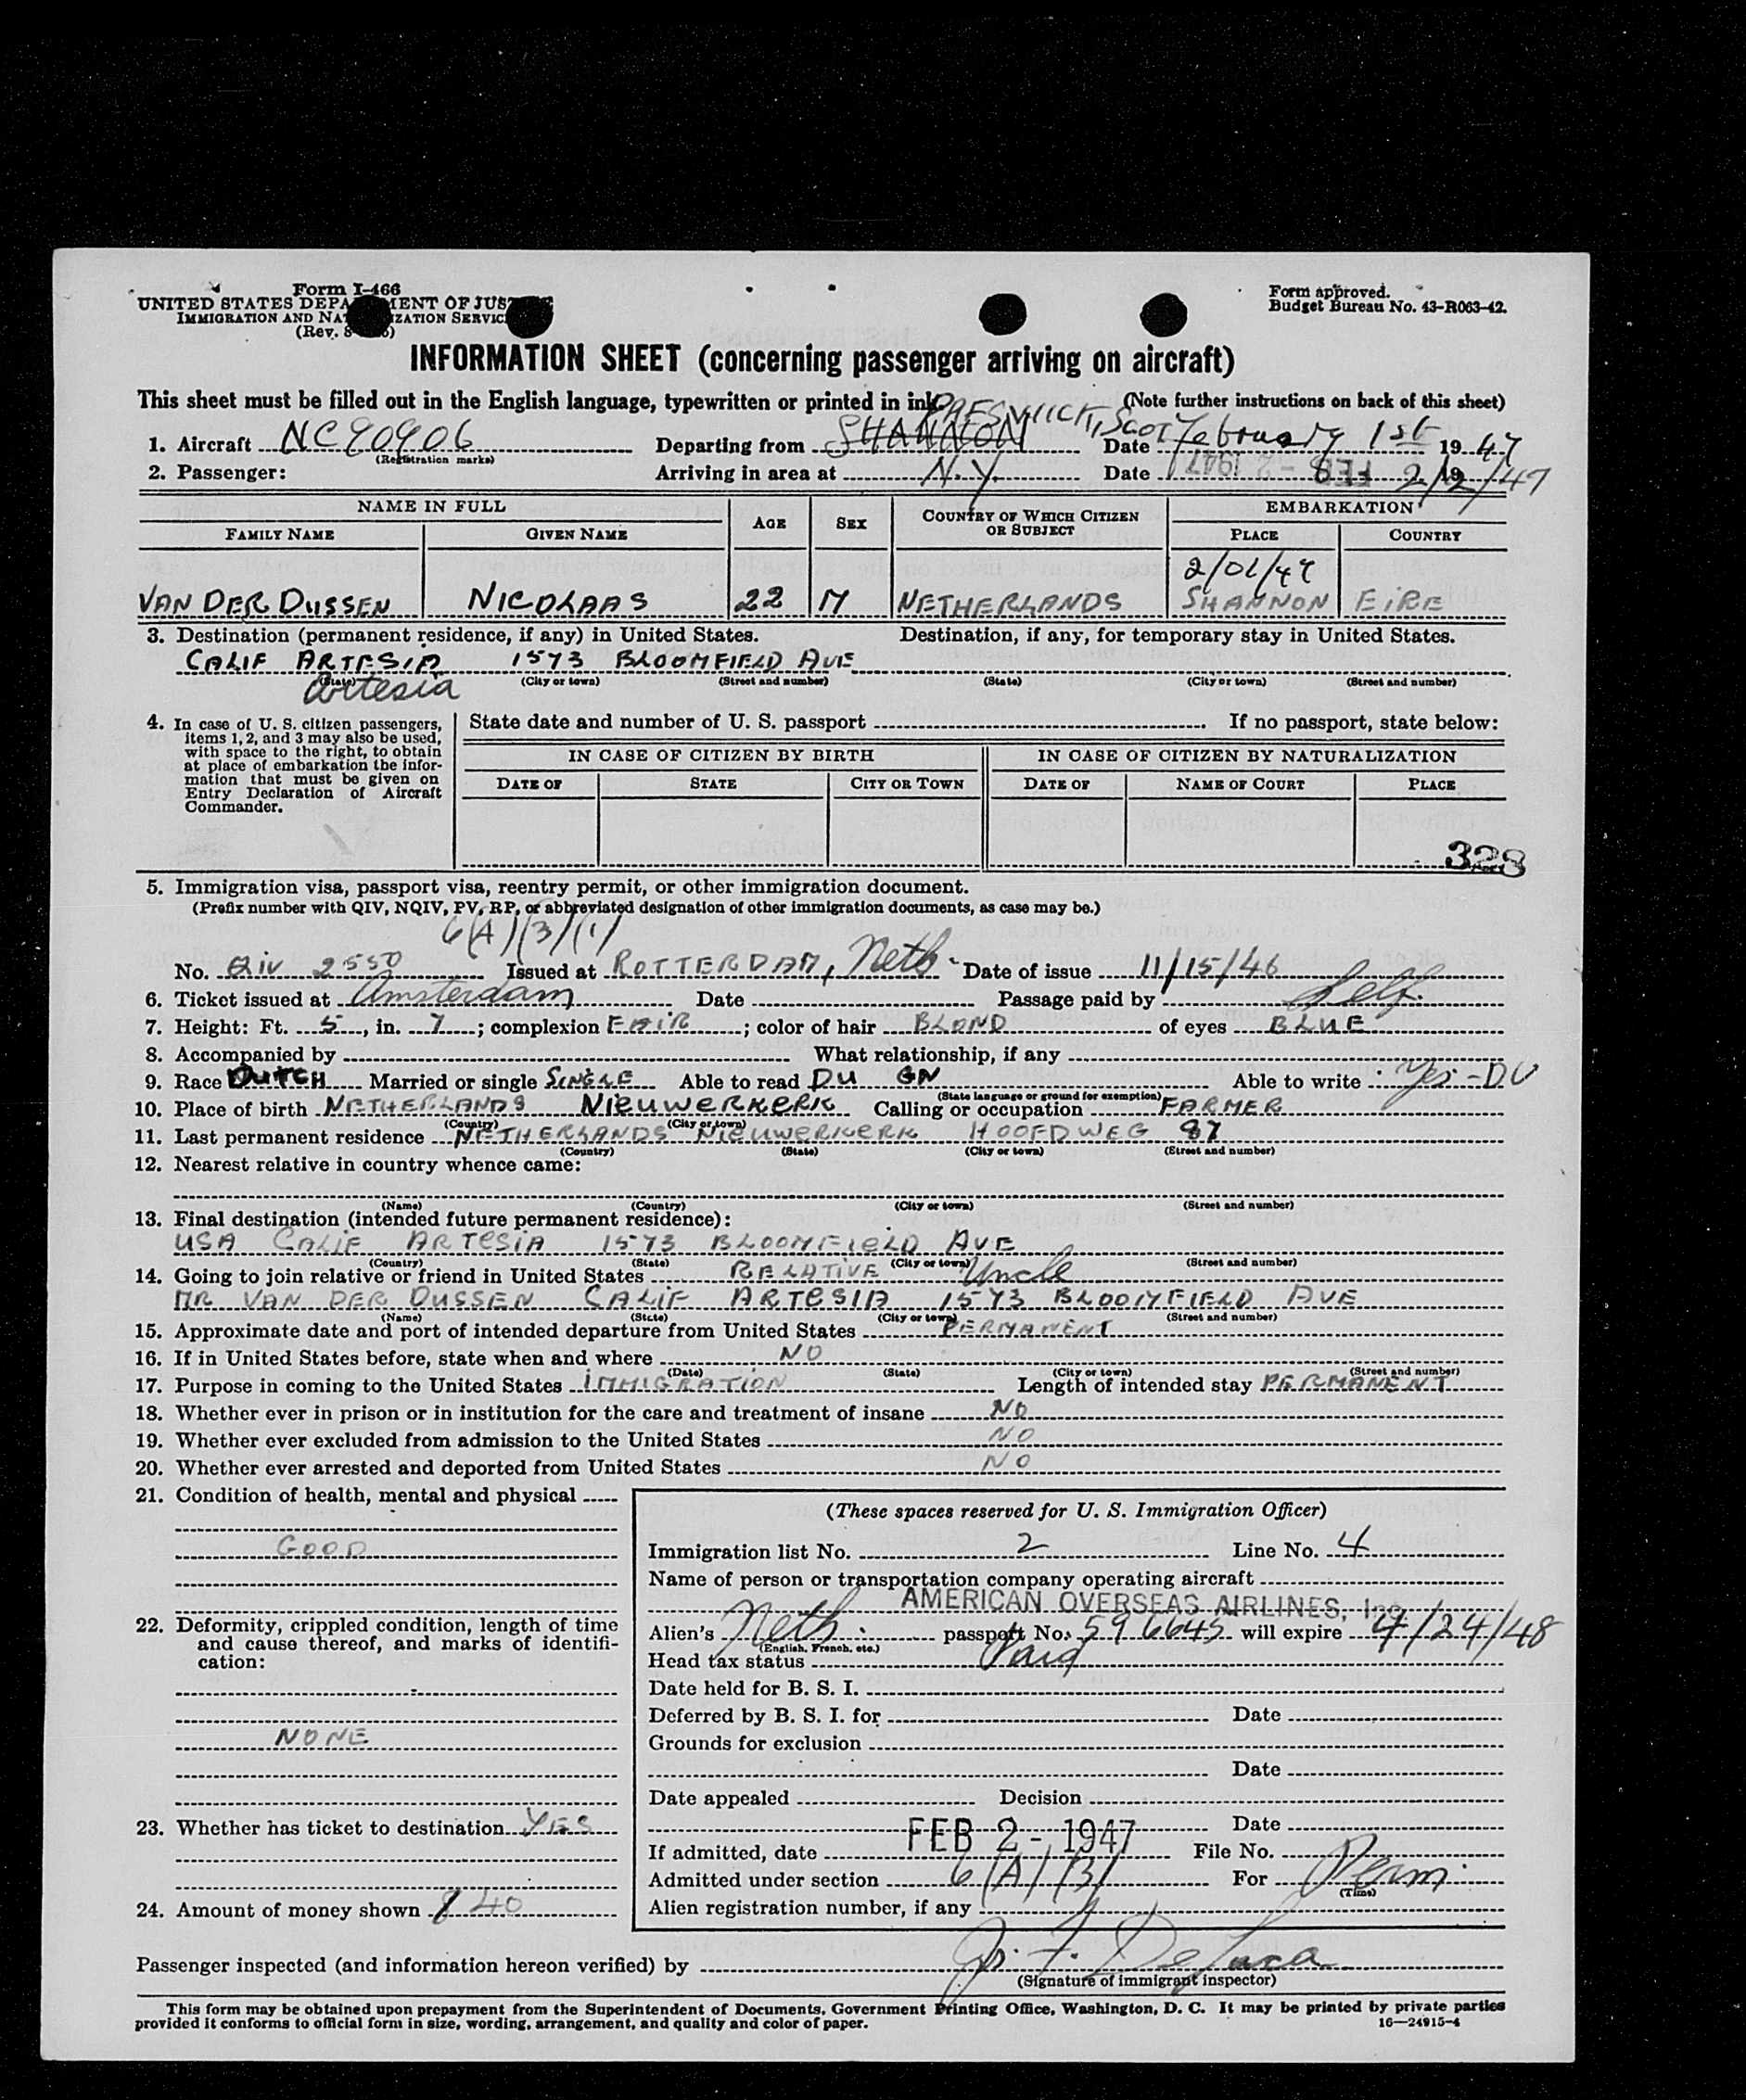 Form I-466
UNITED STATES DEPARTMENT OF JUSTICE
IMMIGRATION AND NATURALIZATION SERVICE
(Rev. 8
Form approved.
Budget Bureau No. 43-R063-42.
INFORMATION SHEET (concerning passenger arriving on aircraft)
This sheet must be filled out in the English language, typewritten or printed in ink. (Note further instructions on back of this sheet)
PRESWICK, Scot
1. Aircraft NC90906 Departing from SHANNON Date February 1st 1947
(Registration marks)
2. Passenger: Arriving in area at N.Y. Date FEB - 2 1947 19 2/2/47
NAME IN FULL AGE SEX COUNTRY OF WHICH CITIZEN OR SUBJECT EMBARKATION
FAMILY NAME GIVEN NAME PLACE COUNTRY
2/01/47
VAN DER DUSSEN NICOLAAS 22 M NETHERLANDS SHANNON EIRE
3. Destination (permanent residence, if any) in United States. Destination, if any, for temporary stay in United States.
CALIF ARTESIA 1573 BLOOMFIELD AVE
(State) (City or town) (Street and number) (State) (City or town) (Street and number)
Artesia
4. In case of U. S. citizen passengers, items 1, 2, and 3 may also be used, with space to the right, to obtain at place of embarkation the information that must be given on Entry Declaration of Aircraft Commander.
State date and number of U. S. passport If no passport, state below:
IN CASE OF CITIZEN BY BIRTH IN CASE OF CITIZEN BY NATURALIZATION
DATE OF STATE CITY OR TOWN DATE OF NAME OF COURT PLACE
328
5. Immigration visa, passport visa, reentry permit, or other immigration document.
(Prefix number with QIV, NQIV, PV, RP, or abbreviated designation of other immigration documents, as case may be.)
6(A)(3)(1)
No. QIV 2550 Issued at ROTTERDAM, Neth. Date of issue 11/15/46
6. Ticket issued at Amsterdam Date Passage paid by Self.
7. Height: Ft. 5, in. 7; complexion FAIR; color of hair BLOND of eyes BLUE
8. Accompanied by What relationship, if any
9. Race DUTCH Married or single SINGLE Able to read DU GN Able to write Yes - DU
(State language or ground for exemption)
10. Place of birth NETHERLANDS NIEUWERKERK Calling or occupation FARMER
(Country) (City or town)
11. Last permanent residence NETHERLANDS NIEUWERKERK HOOFDWEG 87
(Country) (State) (City or town) (Street and number)
12. Nearest relative in country whence came:
(Name) (Country) (City or town) (Street and number)
13. Final destination (intended future permanent residence):
USA CALIF ARTESIA 1573 BLOOMFIELD AVE
(Country) (State) (City or town) (Street and number)
14. Going to join relative or friend in United States RELATIVE Uncle
MR VAN DER DUSSEN CALIF ARTESIA 1573 BLOOMFIELD AVE
(Name) (State) (City or town) (Street and number)
15. Approximate date and port of intended departure from United States PERMANENT
16. If in United States before, state when and where NO
(Date) (State) (City or town) (Street and number)
17. Purpose in coming to the United States IMMIGRATION Length of intended stay PERMANENT
18. Whether ever in prison or in institution for the care and treatment of insane NO
19. Whether ever excluded from admission to the United States NO
20. Whether ever arrested and deported from United States NO
21. Condition of health, mental and physical
GOOD
22. Deformity, crippled condition, length of time and cause thereof, and marks of identification:
NONE
23. Whether has ticket to destination YES
24. Amount of money shown $ 40
(These spaces reserved for U. S. Immigration Officer)
Immigration list No. 2 Line No. 4
Name of person or transportation company operating aircraft
AMERICAN OVERSEAS AIRLINES, Inc.
Alien's Neth. passport No. 596645 will expire 4/24/48
(English, French, etc.)
Head tax status Paid
Date held for B. S. I.
Deferred by B. S. I. for Date
Grounds for exclusion
Date
Date appealed Decision
Date
If admitted, date FEB 2 - 1947 File No.
Admitted under section 6(A)(3) For Perm.
(Time)
Alien registration number, if any
Passenger inspected (and information hereon verified) by F. DeLuca
(Signature of immigrant inspector)
This form may be obtained upon prepayment from the Superintendent of Documents, Government Printing Office, Washington, D. C. It may be printed by private parties
provided it conforms to official form in size, wording, arrangement, and quality and color of paper. 16—24915-4